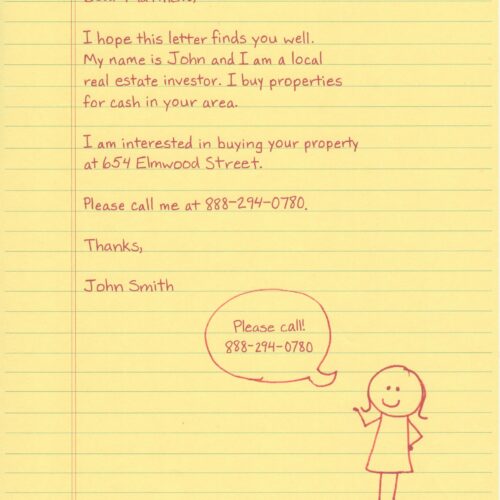 I hope this letter finds you well.
My name is John and I am a local
real estate investor. I buy properties
for cash in your area.
I am interested in buying your property
at 654 Elmwood Street.
Please call me at 888-294-0780.
Thanks,
John Smith
Please call!
888-294-0780